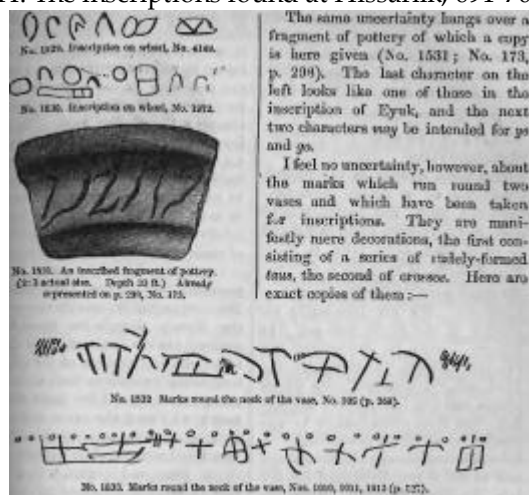 The inscriptions found at Hissarlik, 691
No. 1529. Inscription on wheel, No.
No. 1530. Inscription on wheel, No. 1972.
No. 1531. An inscribed fragment of pottery.
(2:3 actual size. Depth ft.) Already
represented on p. 298, No. 173.
The same uncertainty hangs over a
fragment of pottery of which a copy
is here given (No. 1531; No. 173,
p. 298). The last character on the
left looks like one of those in the
inscription of Eyuk, and the next
two characters may be intended for
and go.
I feel no uncertainty, however, about
the marks which run round two
vases and which have been taken
for inscriptions. They are mani-
festly mere decorations, the first con-
sisting of a series of rudely-formed
taus, the second of crosses. Here are
exact copies of them:—
No. 1532 Marks round the neck of the vase, No. (p. ).
No. 1533. Marks round the neck of the vase, Nos. (p. 527).